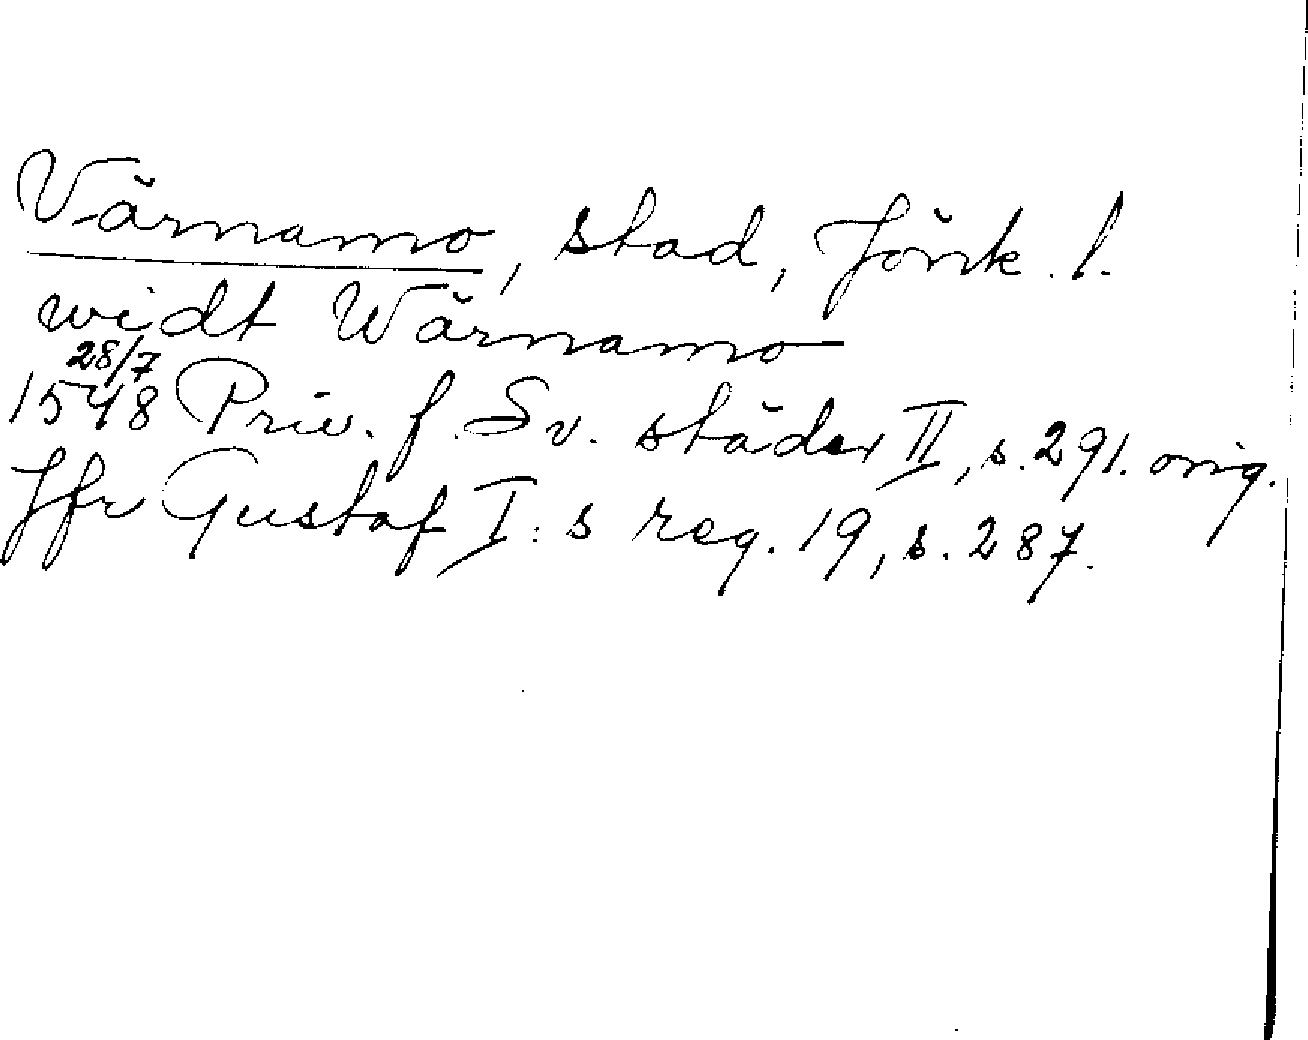 Värnamo, stad, Jönk. l.
widt Wärnamo
28/7
1548 Priv. f. Sv. städer II, s. 291. orig.
Jfr Gustaf I:s reg. 19, s. 287.